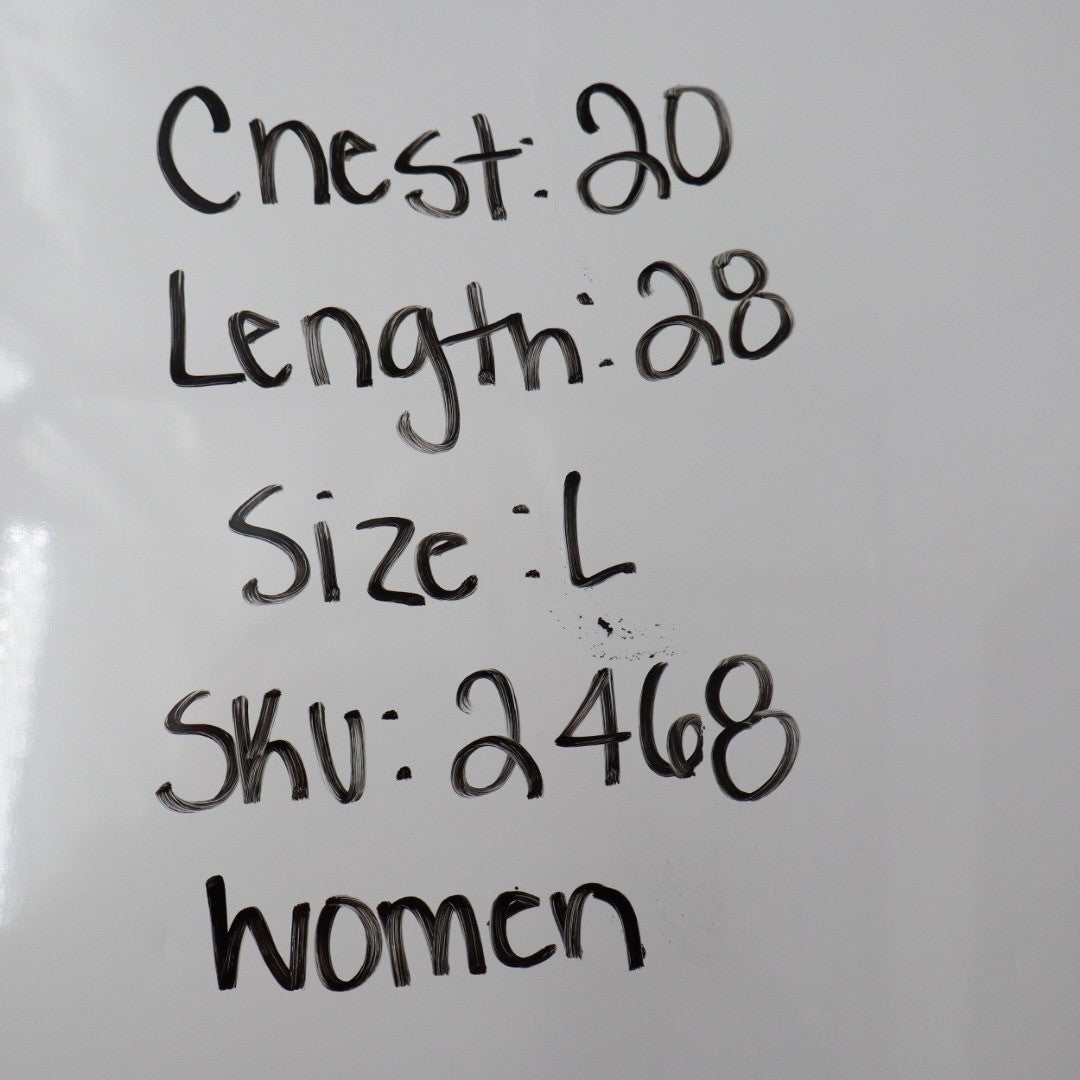 Chest: 20
Length: 28
Size: L
SKU: 2468
Women